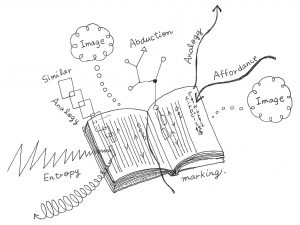 Image
Abduction
Analogy
Affordance
Similar
Analogy
Image
Entropy
marking.